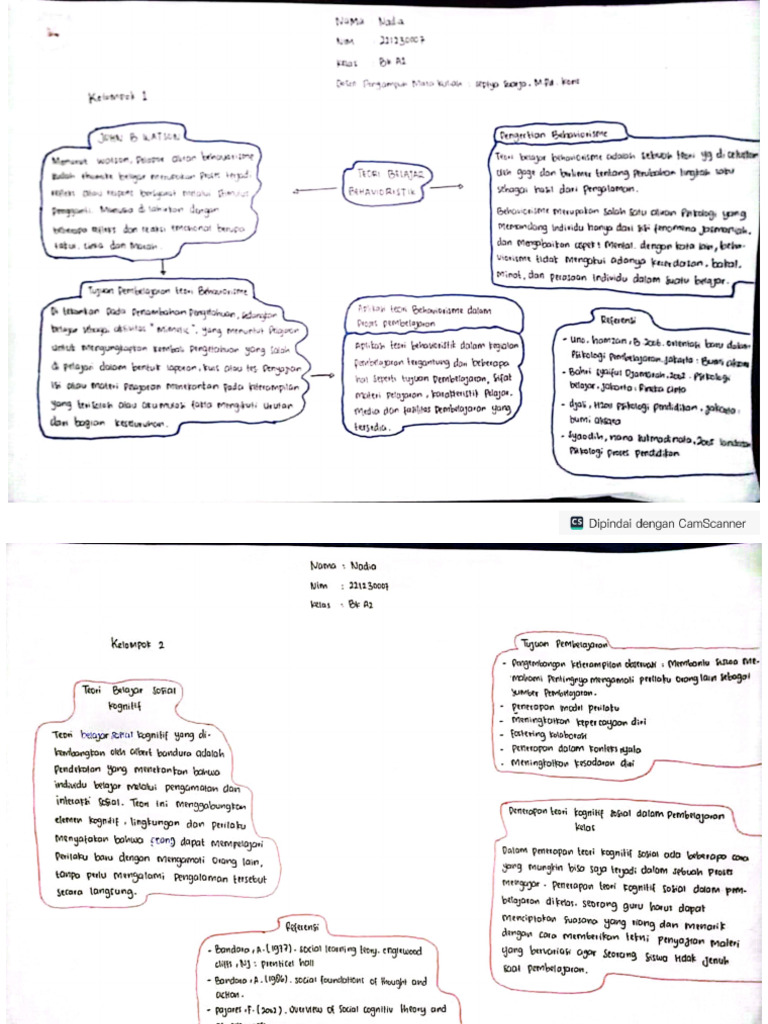 Nama Nadia
Nim : 221230007
Kelas : BK A2
Dosen Pengampun Mata Kuliah : M.Pd. Kons
Kelompok 1
JOHN B WATSON
Menurut Watson, aliran behaviorisme
adalah belajar merupakan Proses terjadi
refleks atau respons melalui Stimulus
Pengganti. Manusia di lahirkan dengan
beberapa refleks dan reaksi emosional berupa
takut, cinta dan Marah.
TEORI BELAJAR
BEHAVIORISTIK
Pengertian Behaviorisme
Teori belajar behaviorisme adalah sebuah teori yg di
oleh gage dan berliner tentang Perubahan tingkah laku
sebagai hasil dari Pengalaman.
Behaviorisme merupakan salah satu aliran Psikologi yang
Memandang individu hanya dari sisi fenomena Jasmaniah,
dan Mengabaikan aspek Mental. dengan kata lain, beha-
viorisme tidak Mengakui adanya kecerdasan, bakat,
minat, dan perasaan individu dalam suatu belajar.
Tujuan Pembelajaran teori Behaviorisme
Di tekankan Pada Penambahan Pengetahuan, Sedangkan
belajar sebagai aktivitas "Mimetic", yang menuntut Pelajar
untuk Mengungkapkan kembali Pengetahuan yang
di pelajari dalam bentuk laporan, kuis atau tes Penyajian
isi atau materi Pelajaran Menekankan pada keterampilan
yang atau akumulasi fakta mengikuti urutan
dari bagian keseluruhan.
Aplikasi teori Behaviorisme dalam
Proses pembelajaran
Aplikasi teori behavioristik dalam kegiatan
Pembelajaran tergantung dari beberapa
hal seperti tujuan Pembelajaran, Sifat
materi Pelajaran, karakteristik Pelajar,
Media dan fasilitas Pembelajaran yang
tersedia.
Referensi
- Uno, hamzah, B 2006. orientasi baru dalam
Psikologi Pembelajaran. Jakarta : Bumi
- Bahri Syaiful Djamarah, 2002. Psikologi
belajar, Jakarta : Rineka Cipta
- djali, H2011 Psikologi Pendidikan, Jakarta :
bumi aksara
- Syaodih, nana Sukmadinata, 2005 landasan
Psikologi Proses Pendidikan
CS Dipindai dengan CamScanner
Nama : Nadia
Nim : 221230007
Kelas : BK A2
Kelompok 2
Teori Belajar Sosial
kognitif
Teori belajar sosial kognitif yang di-
kembangkan oleh albert bandura adalah
Pendekatan yang menekankan bahwa
individu belajar melalui pengamatan dan
interaksi sosial. Teori ini menggabungkan
elemen kognitif, lingkungan dan perilaku
Menyatakan bahwa orang dapat mempelajari
Perilaku baru dengan Mengamati Orang lain,
tanpa perlu Mengalami Pengalaman tersebut
secara langsung.
Tujuan Pembelajaran
- Pengembangan keterampilan observasi : Membantu siswa me-
mahami Pentingnya mengamati perilaku orang lain sebagai
sumber Pembelajaran.
- Penerapan model perilaku
- Meningkatkan kepercayaan diri
- Fostering kolaborasi
- Penerapan dalam konteks nyata
- Meningkatkan kesadaran diri
Penerapan teori kognitif sosial dalam Pembelajaran
kelas
Dalam penerapan teori kognitif sosial ada beberapa cara
yang mungkin bisa saja terjadi dalam sebuah proses
mengajar. Penerapan teori kognitif sosial dalam pem-
belajaran dikelas, seorang guru harus dapat
menciptakan suasana yang riang dan menarik
dengan cara memberikan tekni penyajian materi
yang bervariasi agar seorang siswa tidak jenuh
saat pembelajaran.
Referensi
- Bandara, A. (1977). social learning teory. englewood
cliffs, NJ : prentice hall
- Bandara, A. (1986). social foundations of thought and
action.
- pajares, F. (2002). overview of Social cognitiv theory and